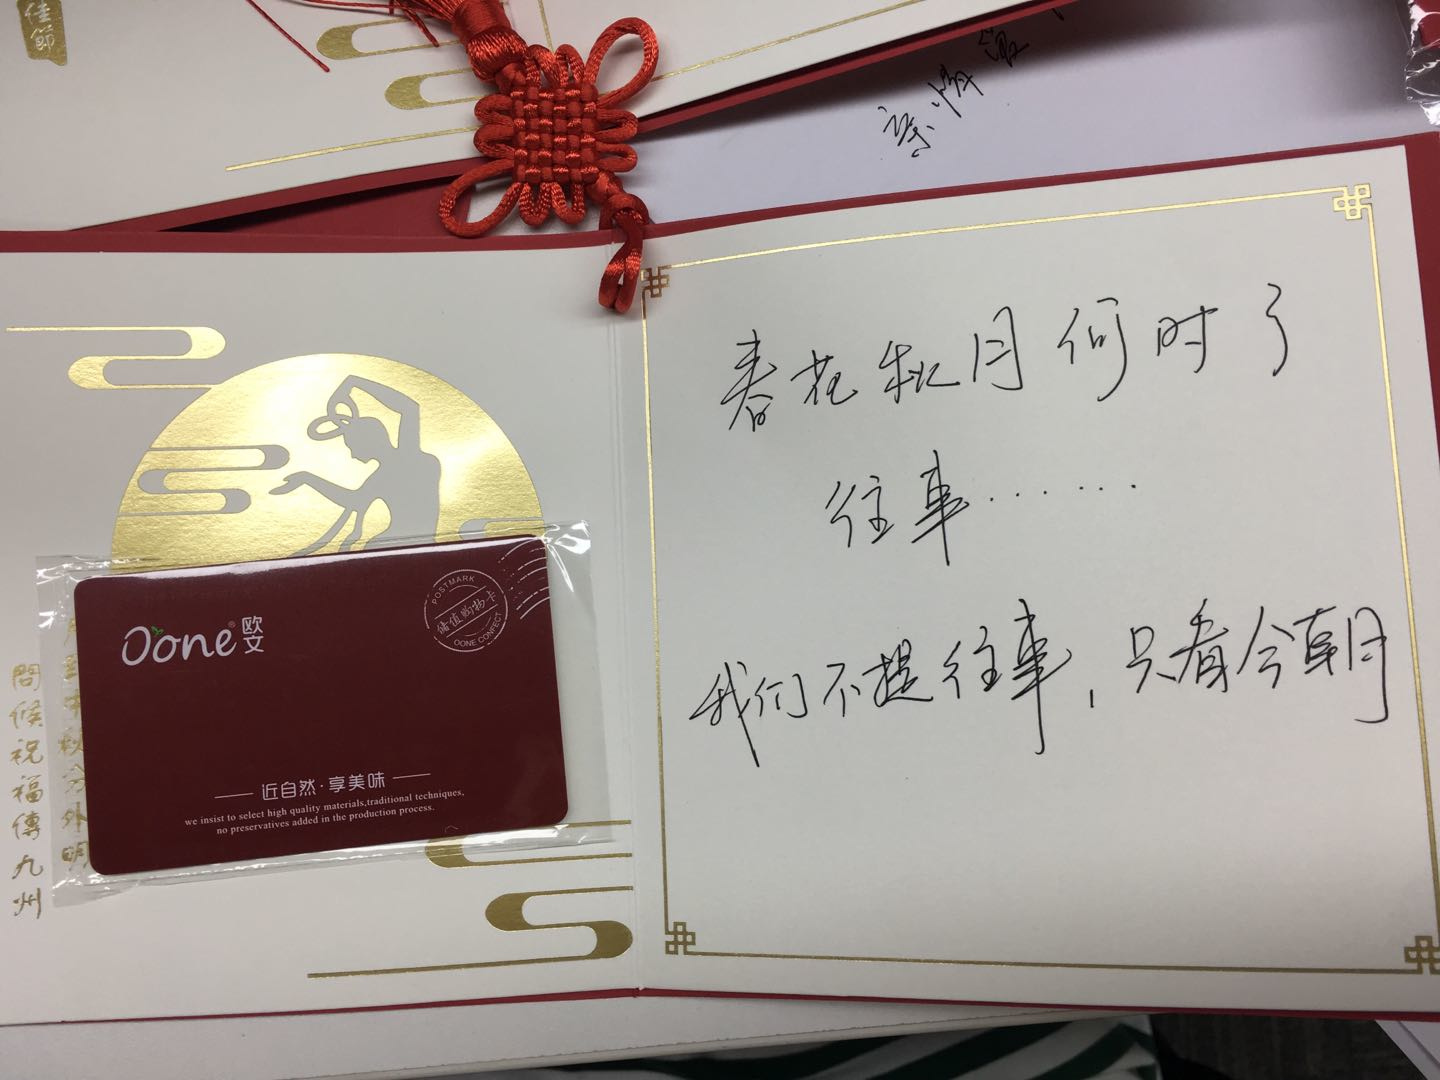 佳節
春花秋月何时了
往事······
我们不提往事，只看今朝
Oone® 欧文
POSTMARK
储值购物卡
OONE CONFECT
近自然·享美味
we insist to select high quality materials,traditional techniques,
no preservatives added in the production process.
分外明
問候祝福傳九州